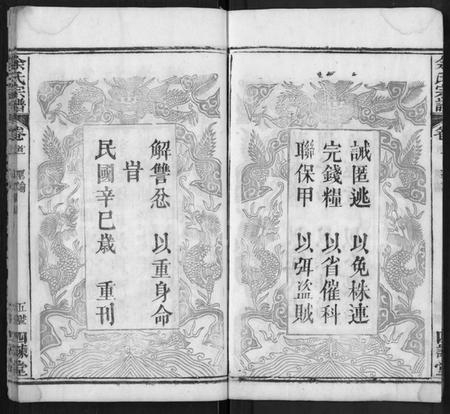 余氏宗譜
卷
誡匿逃 以免株連
完錢糧 以省催科
聯保甲 以弭盜賊
四諫堂
解讐忿 以重身命
旹
民國辛巳歲 重刊
余氏宗譜
卷首
聖諭
五號
四諫堂